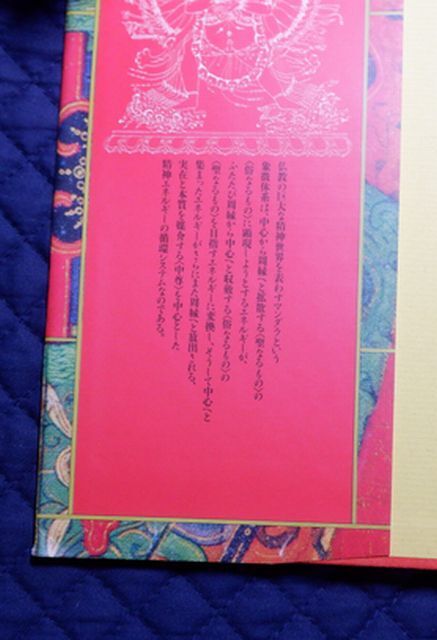 仏教の巨大な精神世界を表わすマンダラという
象徴体系は、中心から周縁へと拡散する〈聖なるもの〉の
〈俗なるもの〉に顕現しようとするエネルギーが、
ふたたび周縁から中心へと収斂する〈俗なるもの〉の
〈聖なるもの〉を目指すエネルギーに変換し、そうして中心へと
集まったエネルギーがさらにまた周縁へと放出される、
実在と本質を媒介する〈中尊〉を中心とした
精神エネルギーの循環システムなのである。